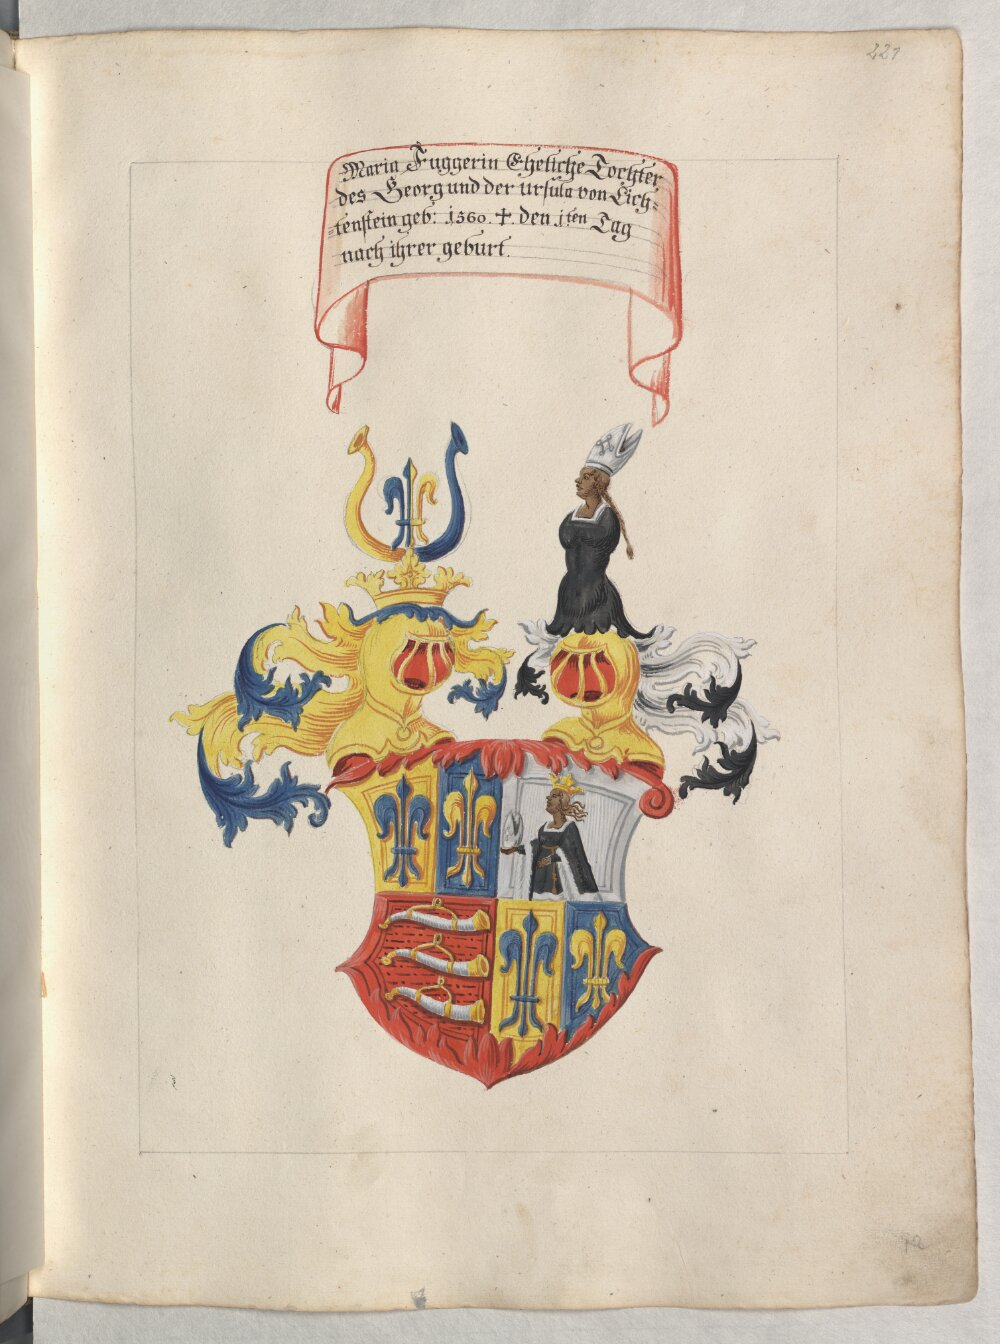 221
Maria Fuggerin Eheliche Tochter
des Georg und der ursula von Lich=
=tenstein geb: 1560. ✝. den 1ten Tag
nach ihrer geburt.